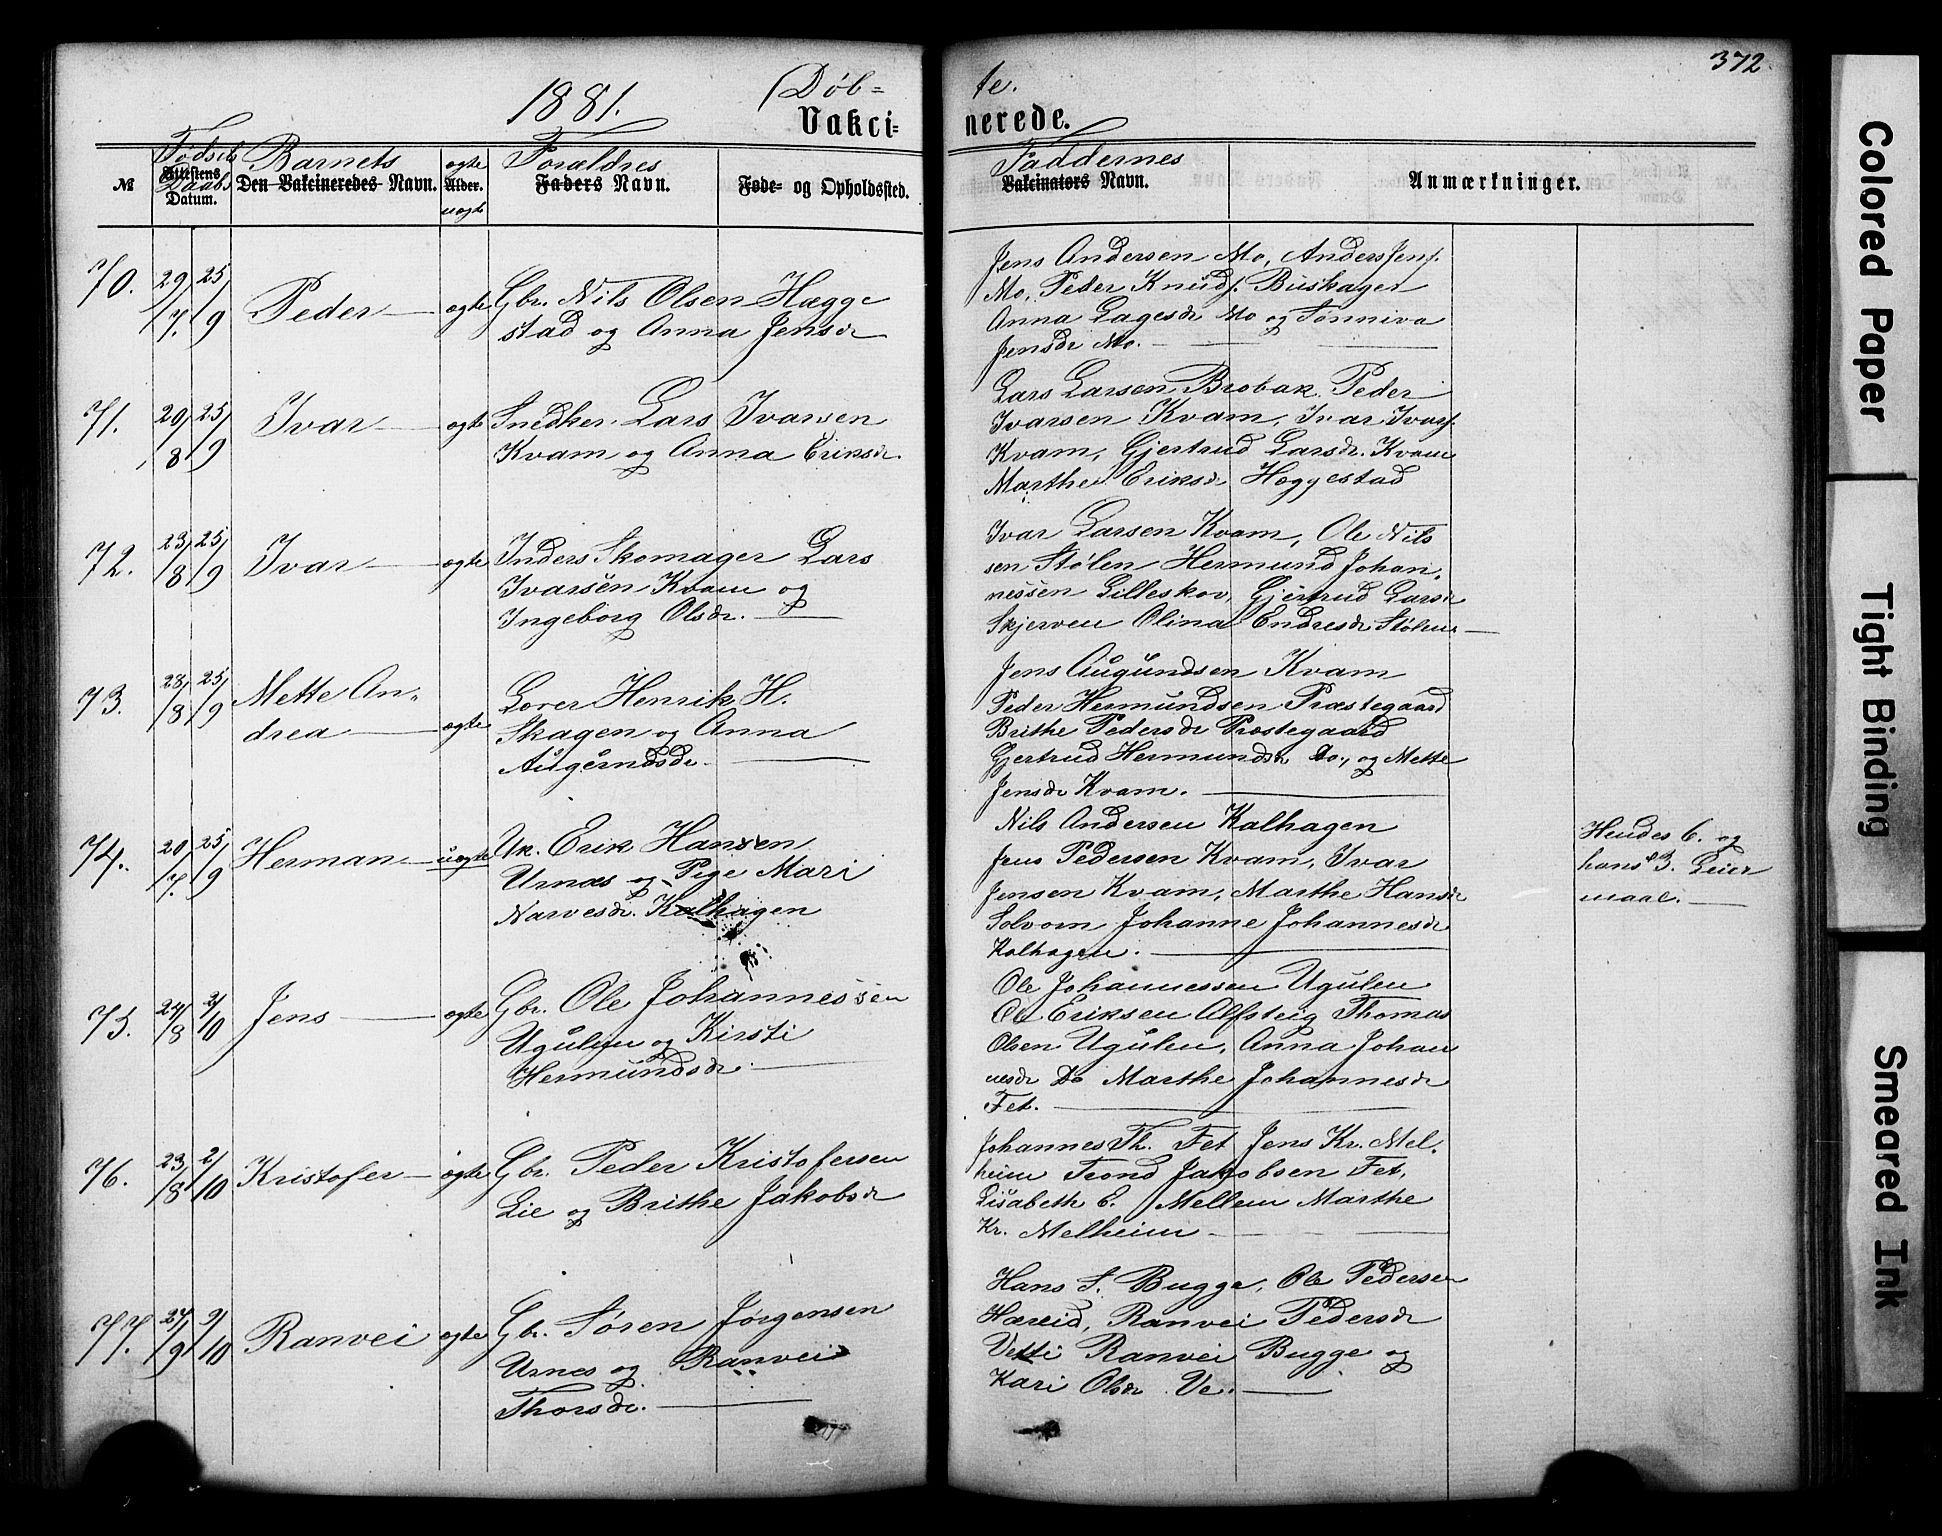 372.
1881.
Døb=
te.
Vakci=
nerede.
Fødsels
Barnets
ægte
Forældres
Faddernes
№
Attestens
Daabs
Datum.
Den Vakcineredes Navn.
Alder.
uægte
Faders Navn.
Føde= og Opholdssted.
Vakcinators Navn.
Anmærkninger.
70. 29/7. 25/9 Peder ægte Gbr. Nils Olsen Hægge
stad og Anna Jensdr
Jens Andersen Mo, Anders Jens.
Mo, Peder Knuds. Buskagen
Anna Lagesdr Mo og Sønniva
Jensdr Mo.
71. 20/8 25/9 Ivar ægte Snedker Lars Ivarsen
Kvam og Anna Eriksdr.
Lars Larsen Brobak Peder
Ivarsen Kvam, Ivar Ivars.
Kvam, Gjertrud Larsdr. Kvam
Marthe Eriksdr Hæggestad
72. 23/8 25/9 Ivar ægte Inders Skomager Lars
Ivarsen Kvam og
Ingeborg Olsdr.
Ivar Larsen Kvam, Ole Nils
sen Stølen Hermund Johan-
nessen Lilleskov, Gjertrud Larsdr
Skjerven Olina Endresdr Stølen
73. 28/8 25/9 Mette An-
drea ægte Lærer Henrik H.
Skagen og Anna
Augundsdr.
Jens Augundsen Kvam
Peder Hermundsen Præstegaard
Brithe Pedersdr Præstegaard
Gjertrud Hermundsdr Do., og Mette
Jensdr Kvam.
74. 20/7. 25/9 Herman uægte Uk. Erik Hansen
Urnæs og Pige Mari
Narvesdr. Kalhagen
Nils Andersen Kalhagen
Jens Pedersen Kvam, Ivar
Jensen Kvam, Marthe Hansdr
Solvorn Johanne Johannesdr
Kalhagen.
Hendes 6. og
hans 3. Leier
maal.
75. 24/8 2/10 Jens ægte Gbr. Ole Johannessen
Ugulen og Kirsti
Hermundsdr.
Ole Johannessen Ugulen
Ole Eriksen Alfsteig Thomas
Olsen Ugulen, Anna Johan
nesdr Do Marthe Johannesdr
Fet.
76. 23/8 2/10 Kristofer ægte Gbr. Peder Kristofersen
Lie og Brithe Jakobsdr
Johannes Th. Fet Jens Kr. Mel-
heim Trond Jakobsen Fet,
Lisabeth E. Mellem Marthe
Kr. Melheim
77. 27/9 2/10 Ranvei ægte Gbr. Søren Jørgensen
Urnes og Ranvei
Thorsdr.
Hans S. Bugge, Ole Pedersen
Hæreid, Ranvei Pedersdr
Vetti Ranvei Bugge og
Kari Olsdr Ve.
Colored Paper
Tight Binding
Smeared Ink